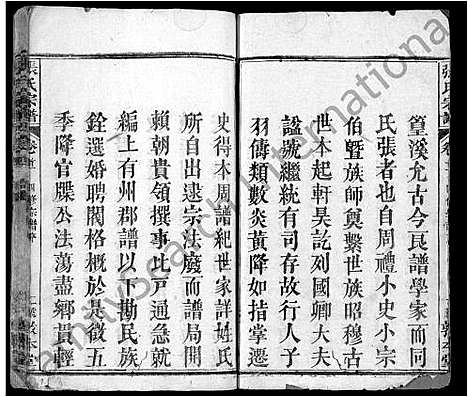 篁溪尤古今良譜學家而同
氏張者也自周禮小史小宗
伯暨族師奠繫世族昭穆古
世本起軒昊訖列國卿大夫
諡號繼統有司存故行人子
羽傳類數炎黃降如指掌遷
史得本周譜紀世家詳姓氏
所自出逮宗法廢而譜局開
賴朝貴領撰事此戶通急就
編上有州郡譜以下勘民族
銓選婚聘閥格概於是徵五
季降官牒公法蕩盡鄉貴檢
張氏宗譜
卷首
四修宗譜序
敦本堂
FamilySearch International